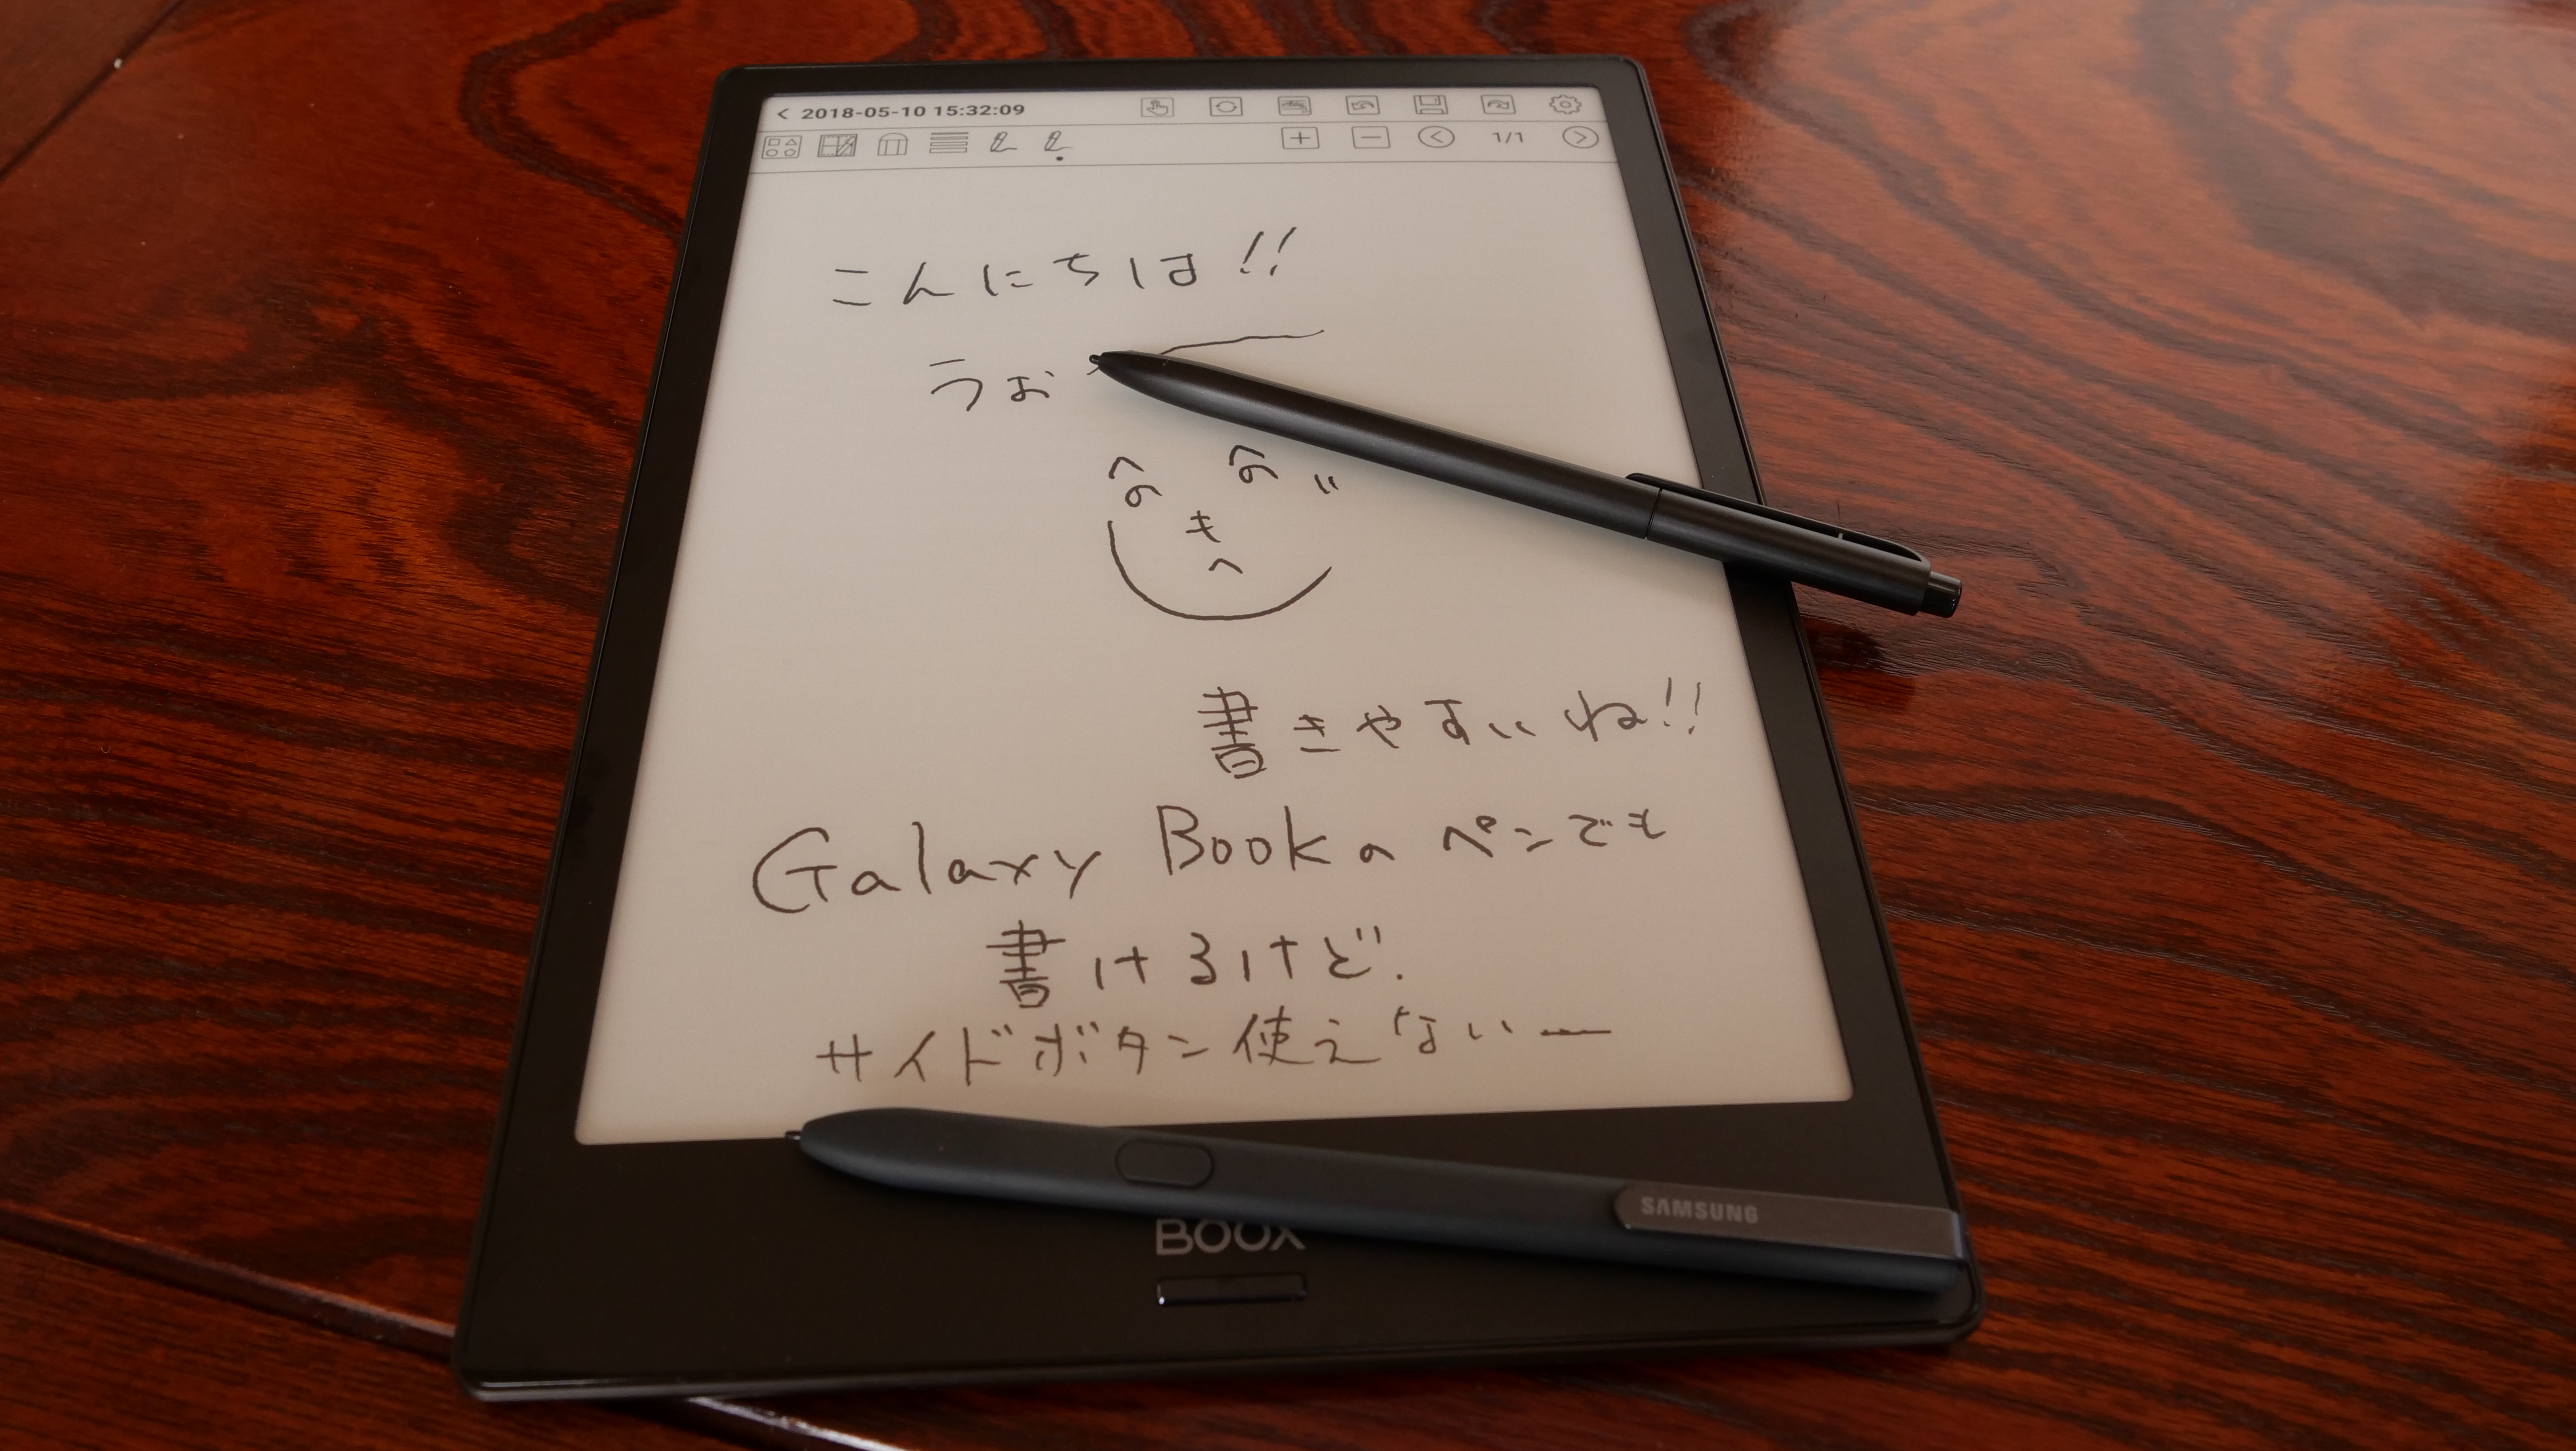 2018-05-10 15:32:09
1/1
こんにちは!!
うお
へ へ
の の "
も
へ
書きやすいね!!
Galaxy Bookのペンでも
書けるけど.
サイドボタン使えないー
SAMSUNG
BOOX